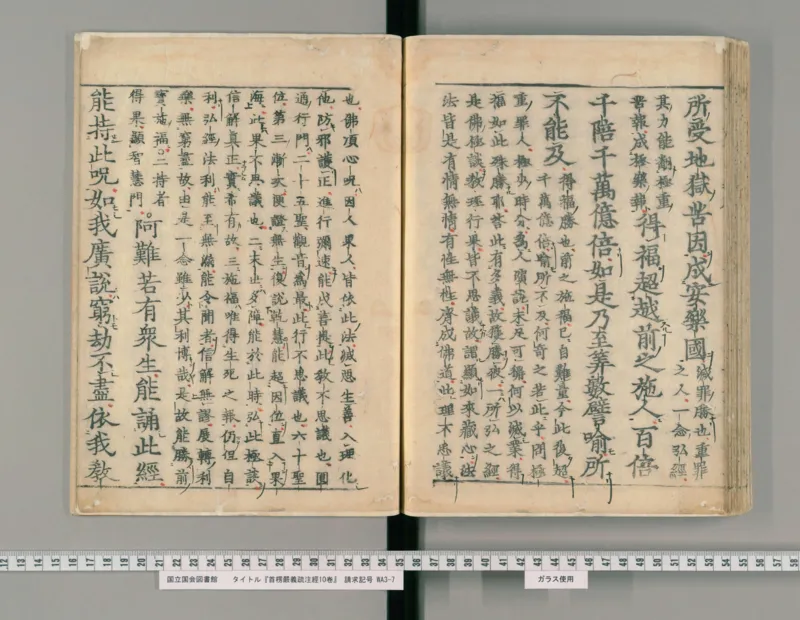 所受地獄苦因成安樂國
滅罪勝也重罪
之人一念弘經
其力能翻極重
苦報成極樂報
得福超越前之施人百倍
千倍千萬億倍如是乃至筭數譬喻所
不能及
得福勝也前之施福已自難量今此復超
千萬億倍喻所不及何奇之若此乎問極
重罪人極少時分為人演說未足可稱何以滅業得
福如此殊勝耶答此有多義故獲勝報一所弘之經
是佛極談教理行果皆不思議故謂顯如來藏心法
法皆是有情無情有性無性齊成佛道此理不思議
也佛頂心呪因人果人皆依此法滅惡生善入理化
他防邪護正進行彌速能成菩提此教不思議也圓
通行門二十五聖觀音為最此行不思議也六十聖
位第三漸次便證無生復説乾慧能超因位直入果
海此果不思議也二末世多障能於此時弘此極談
信解真正實者有故三施福唯得生死之報仍但自
利弘經法利能王無緣能令聞者信解無謬展轉利
樂無窮盡故由是一念雖少其利博哉是故能勝前
寶施福二持者
得果顯智慧門
阿難若有衆生能誦此經
能持此呪如我廣説窮劫不盡依我教
国立国会図書館 タイトル『首楞嚴義疏注經10巻』 請求記号 WA3-7
ガラス使用